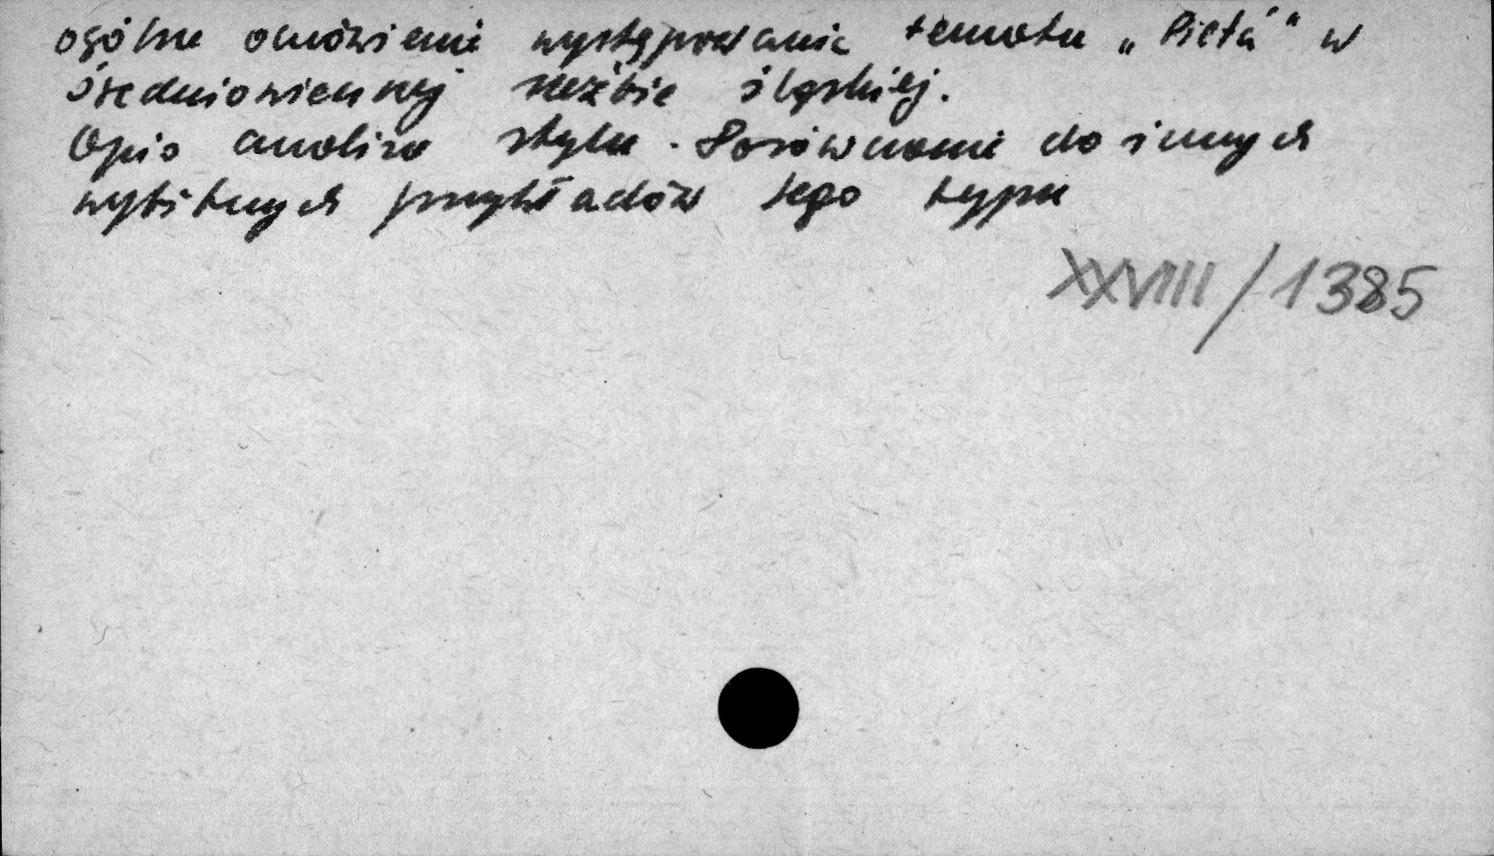 ogólne omówienie występowania tematu „Pietá" w
średniowiecznej rzeźbie śląskiej.
Opis analiza stylu. Porównanie do innych
wybitnych przykładów tego typu
XXVIII/1385